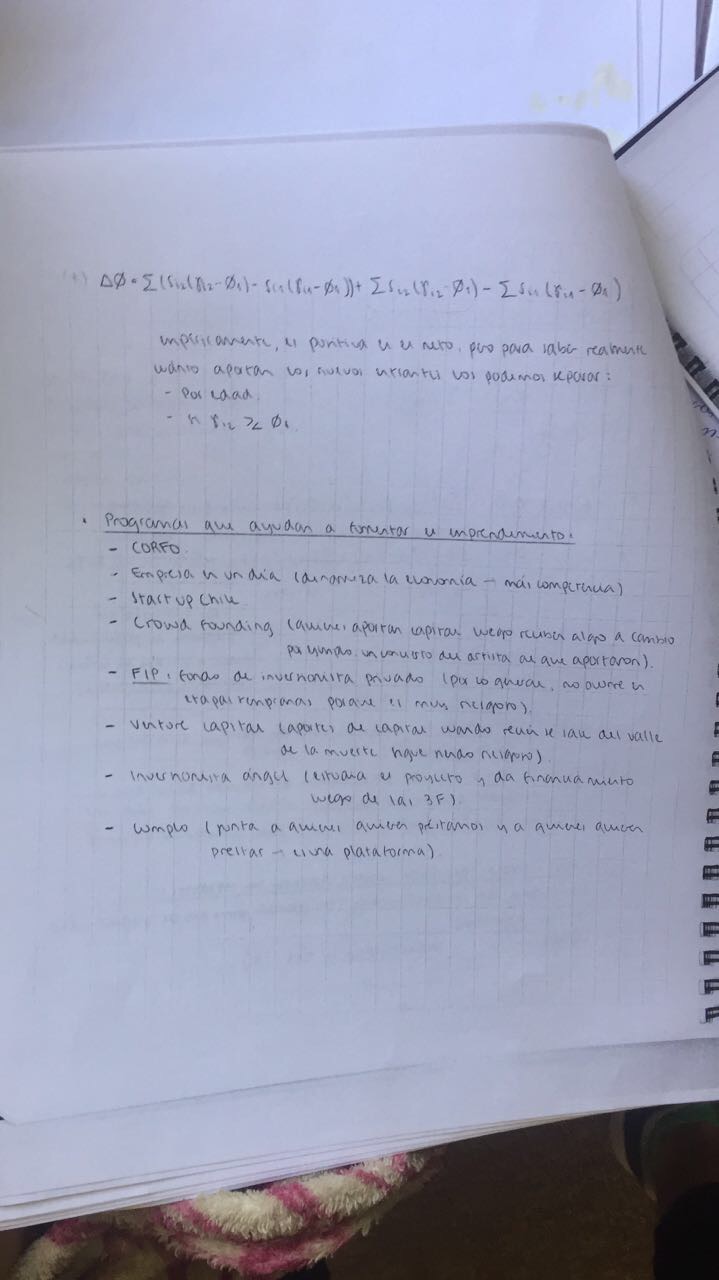 (*) ΔØ = Σ(S₁₂(γ₁₂-Ø₁) - S₁₁(γ₁₁-Ø₁)) + Σ S₁₂(γ₁₂-Ø₁) - Σ S₁₁(γ₁₁-Ø₁)
empíricamente, es positiva en el neto, pero para saber realmente
cuánto aportan los nuevos entrantes los podemos separar:
- Por edad.
- γ₁₂ ≷ Ø₁
• Programas que ayudan a fomentar el emprendimiento:
- CORFO.
- Empresa en un día (dinamiza la economía → más competencia)
- Start up Chile
- Crowd Founding (quienes aportan capital luego reciben algo a cambio
por ejemplo, un concierto del artista al que aportaron).
- FIP: fondo de inversionista privado (por lo general, no ocurre en
etapas tempranas porque es muy riesgoso).
- Venture capital (aportes de capital cuando recién se sale del valle
de la muerte sigue siendo riesgoso).
- Inversionista ángel (estudia el proyecto y da financiamiento
luego de las 3F).
- Cumplo (junta a quienes quieren préstamos y a quienes quieren
prestar → es una plataforma)